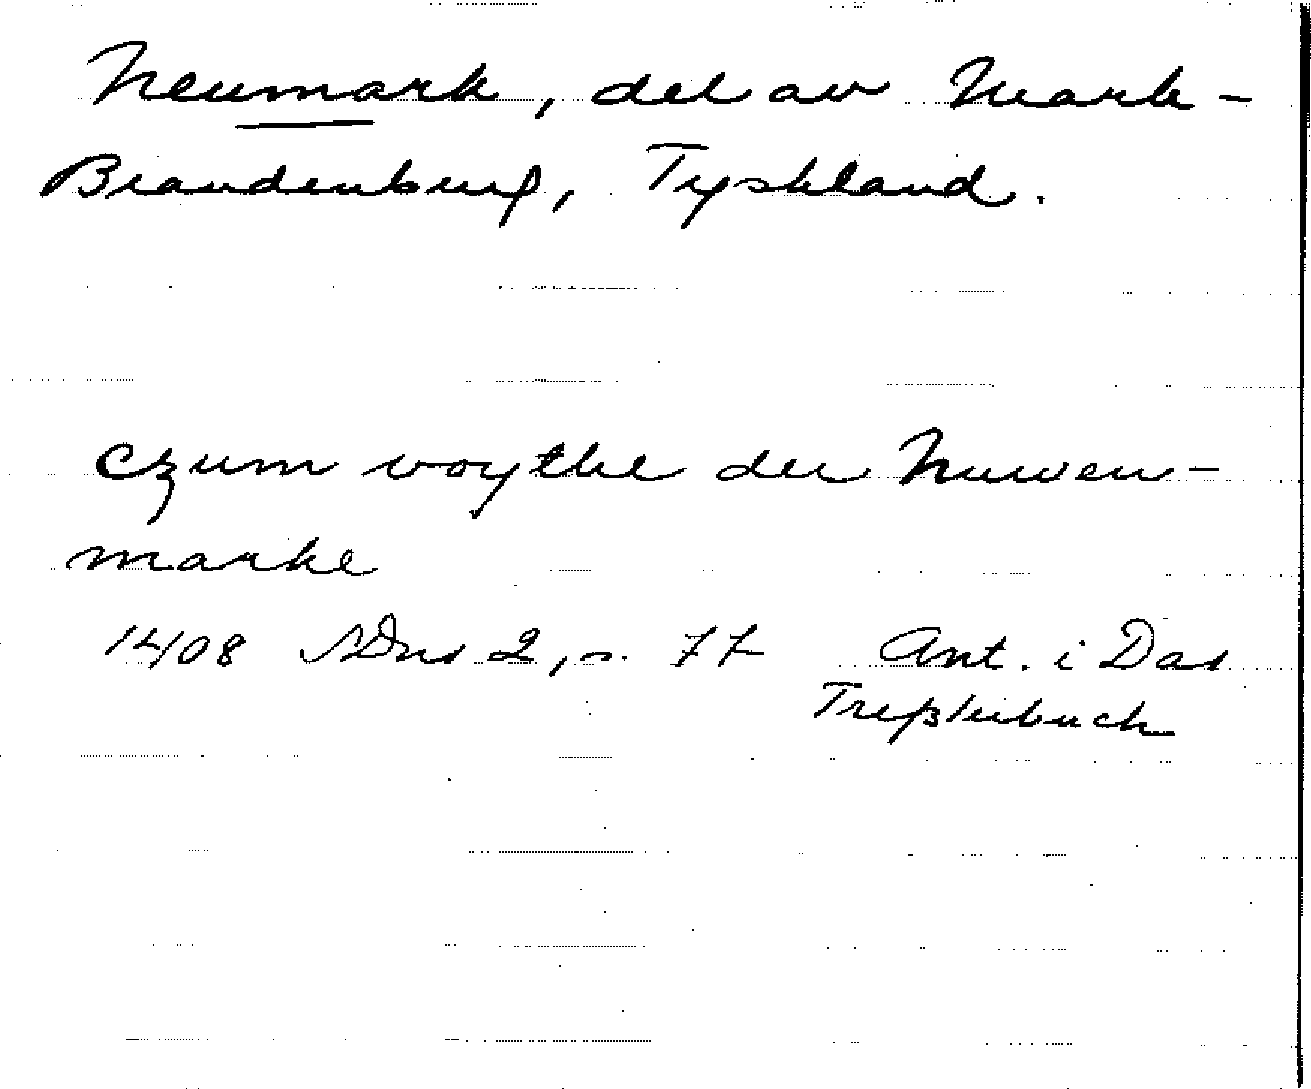 Neumark, del av Mark-
Brandenburg, Tyskland.
czum voythe der Nuwen-
marke
1408 SDns 2, s. 77 Ant. i Das
Treßlerbuch